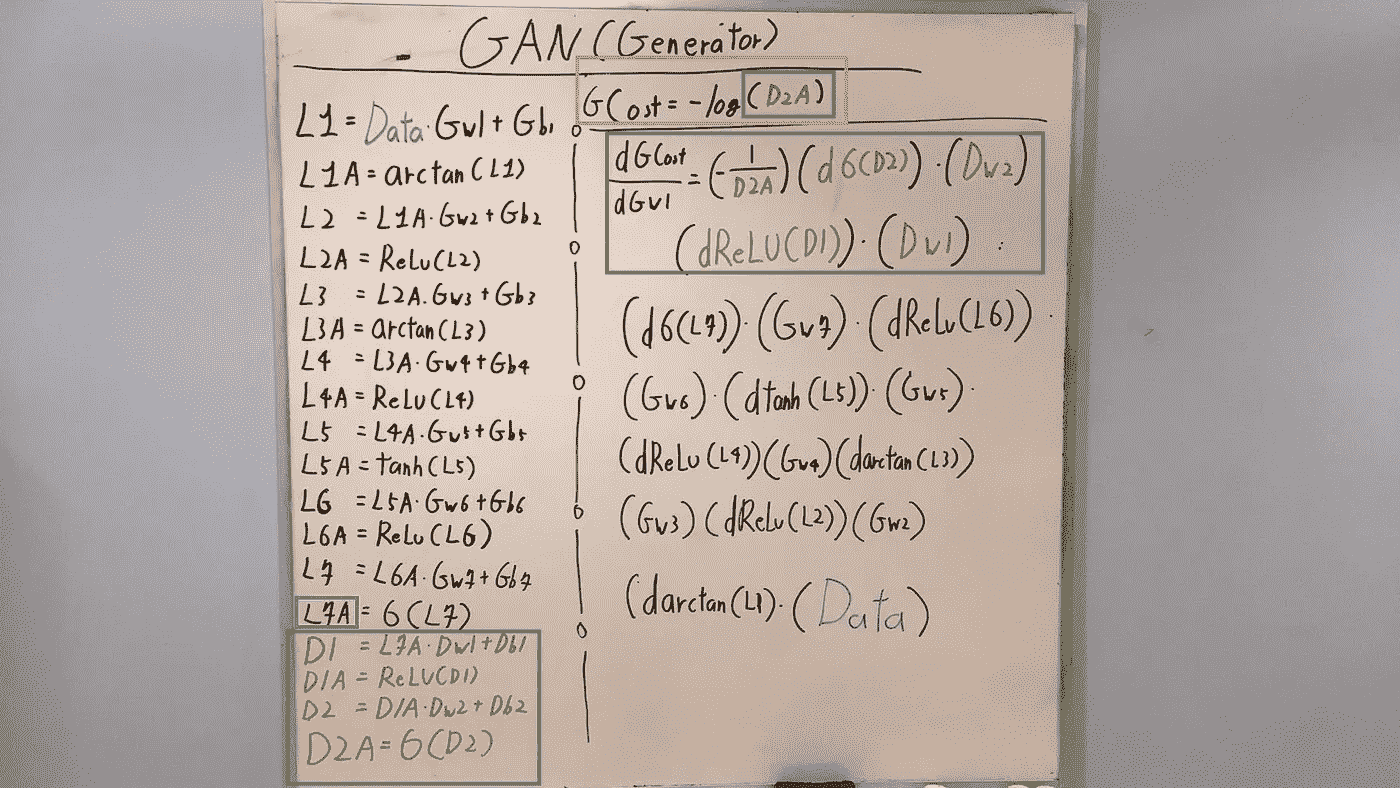 GAN (Generator)
L1 = Data·Gw1 + Gb1
L1A = arctan(L1)
L2 = L1A·Gw2 + Gb2
L2A = ReLu(L2)
L3 = L2A.Gw3 + Gb3
L3A = arctan(L3)
L4 = L3A·Gw4 + Gb4
L4A = ReLu(L4)
L5 = L4A.Gw5 + Gb5
L5A = tanh(L5)
L6 = L5A·Gw6 + Gb6
L6A = ReLu(L6)
L7 = L6A·Gw7 + Gb7
L7A = 6(L7)
D1 = L7A·Dw1 + Db1
D1A = ReLU(D1)
D2 = D1A·Dw2 + Db2
D2A = 6(D2)
GCost = -log(D2A)
dGCost/dGw1 = (-1/D2A)(d6(D2))·(Dw2)
(dReLU(D1))·(Dw1) :
(d6(L7))·(Gw7)·(dRelu(L6))·
(Gw6)·(dtanh(L5))·(Gw5)·
(dRelu(L4))(Gw4)(darctan(L3))
(Gw3)(dRelu(L2))(Gw2)
(darctan(L1)·(Data)